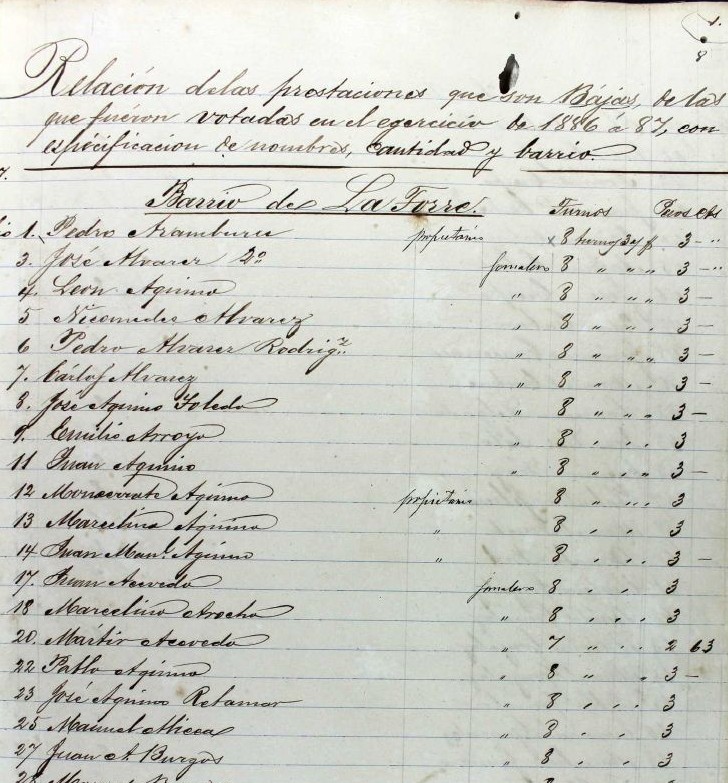 1.
8
Relación de las prestaciones que son Bájas, de las
que fuéron votadas en el egercicio de 1886 á 87, con
espicificacion de nombres, cantidad y barrio.
7.
Barrio de La Torre. Turnos Pesos Cts
1. Pedro Aramburu propietario x 8 3 - "
3. José Alvarez 2º jornalero 8 " " " 3 - "
4. Leon Aquino " 8 " " " 3 -
5 Nicomedes Alvarez " 8 " " " 3 -
6 Pedro Alvarez Rodrigz " 8 " " " 3 -
7. Cárlos Alvarez " 8 " " " 3 -
8. José Aquino Toledo " 8 " " " 3 -
9. Emilio Arroyo " 8 " " " 3
11 Juan Aquino " 8 " " " 3 -
12 Monserrate Aquino propietario 8 " " " 3
13 Marcelino Aquino " 8 " " 3
14 Juan Manl Aquino " 8 " " 3 -
17. Juan Acevedo jornalero 8 " " 3
18 Marcelino Arocho " 8 " " " 3
20. Martir Acevedo " 7 " " " 2 63
22 Pablo Aquino " 8 " " 3 -
23 José Aquino Retamar " 8 " " " 3
25 Manuel " 8 " " 3
27 Juan A. Burgos " 8 " " 3
28